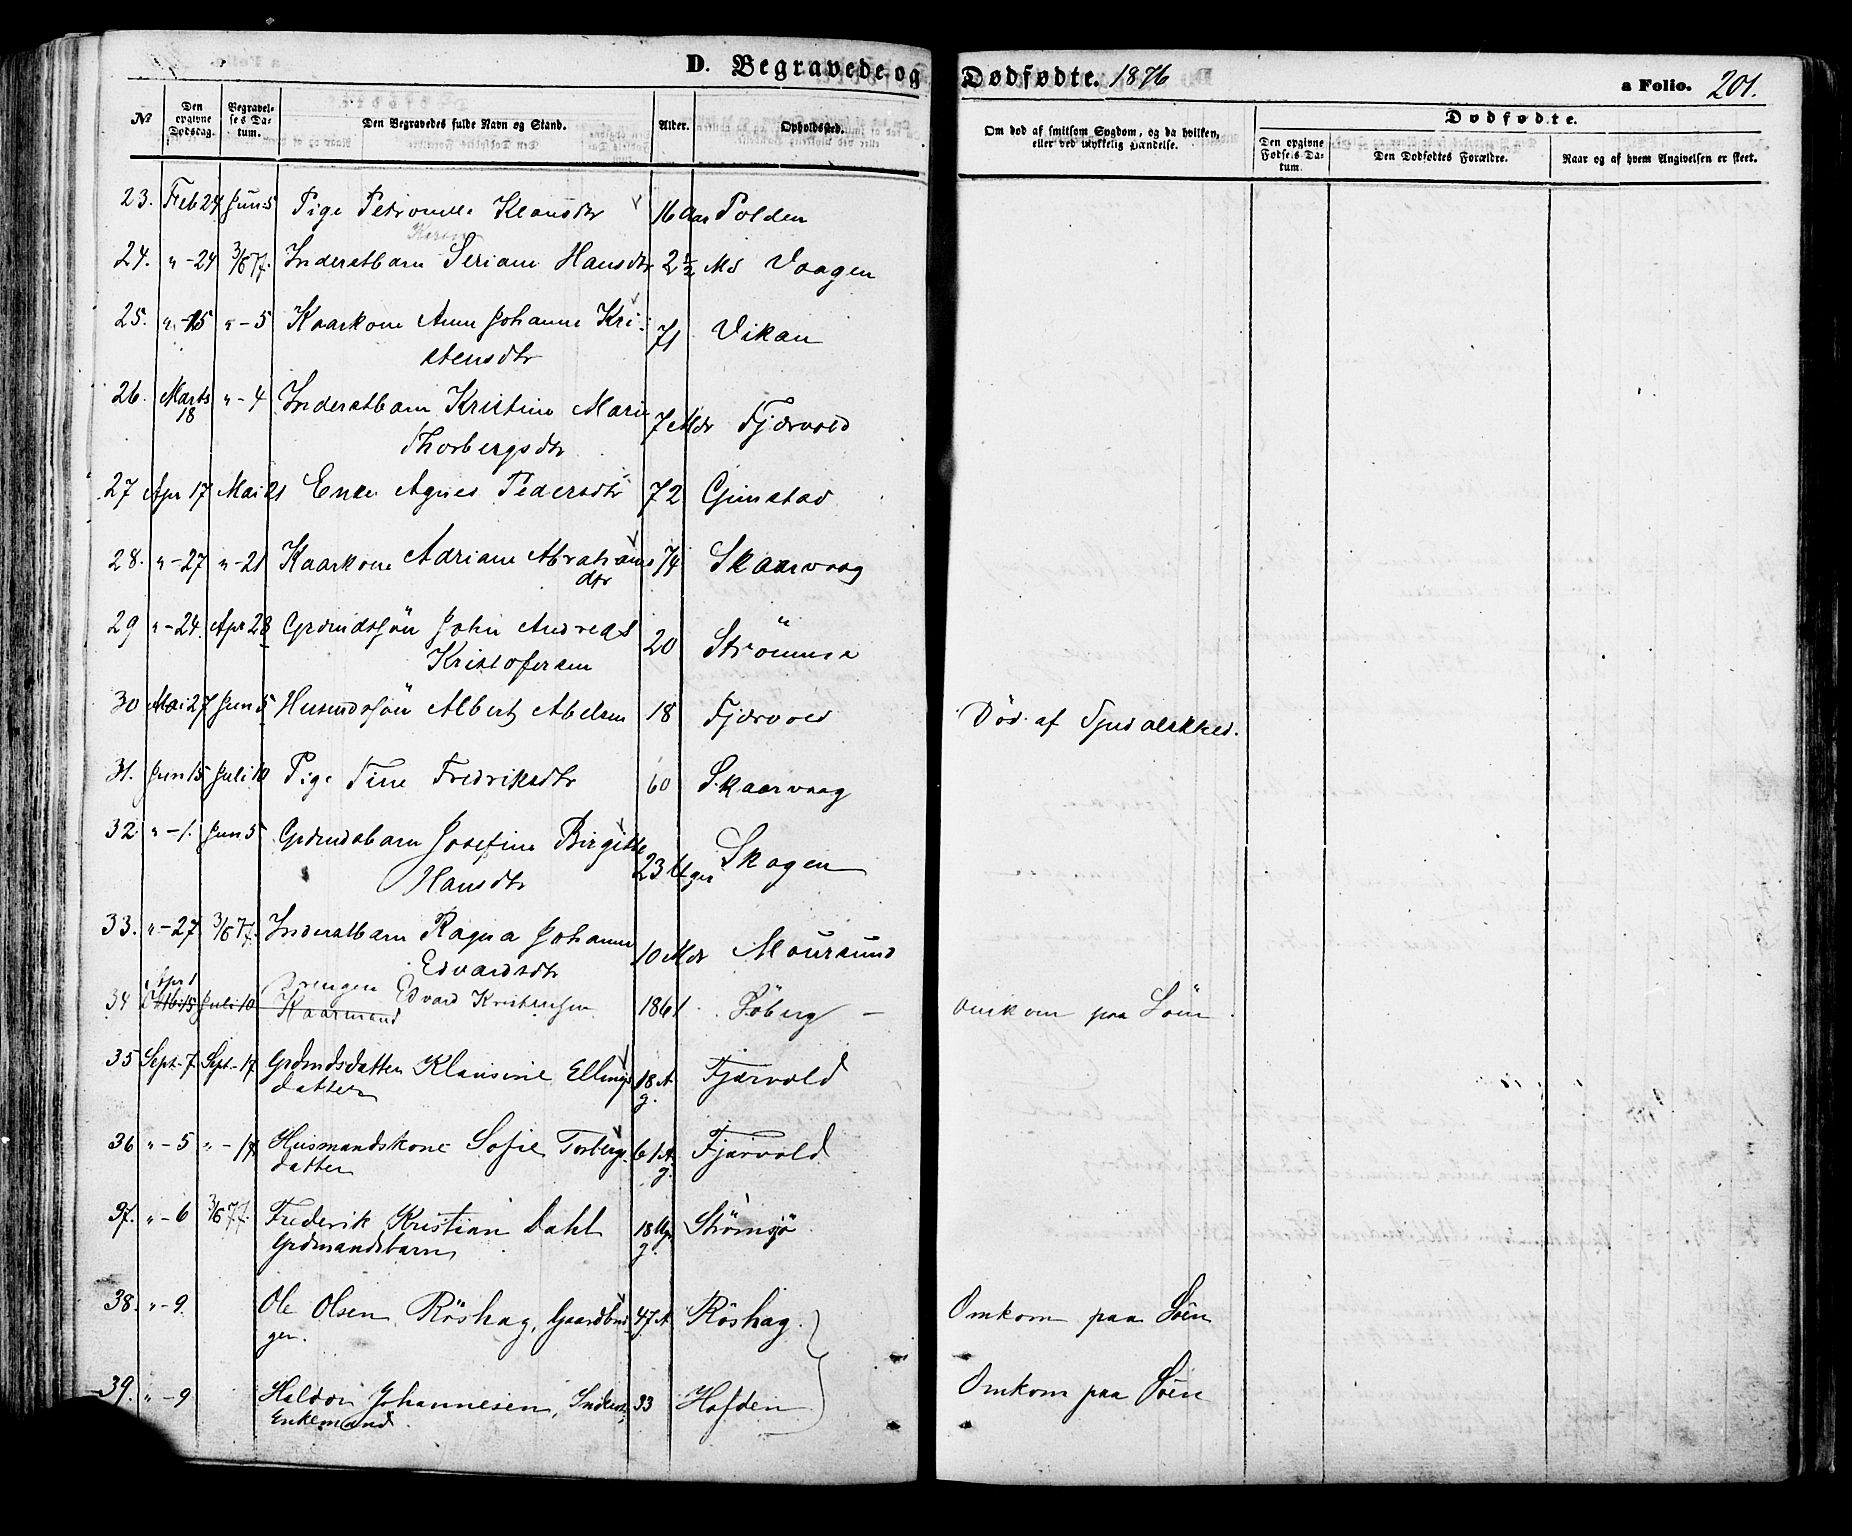 D. Begravede og Dødfødte. 1876 a Folio. 201.
№ Den opgivne Dødsdag. Begravelses Datum. Den Begravedes fulde Navn og Stand. Alder. Opholdssted. Om død af smitsom Sygdom, og da hvilken, eller ved ulykkelig Hændelse. Dødfødte. Den opgivne Fødsels Datum. Den Dødfødtes Forældre. Naar og af hvem Angivelsen er skeet.
23. Feb 24 Jun 5 Pige Petronelle Klausdtr 16 Aar Polden
24. " - 24 3/6 77. Inderstbarn Seriane Hansdtr 2 1/2 Md Vaagen
25. " - 15 " - 5 Kaarkone Ane Johanne Kri-
stensdtr 71 Vikan
26. Marts 18 " - 4 Inderstbarn Kristine Marie
Thorbergsdtr 7 Mdr Fjærvold
27 Apr 17 Mai 21 Enke Agnes Pedersdtr 72 Gimstad
28. " - 27 " - 21 Kaarkone Adriane Abrahams
dtr 74 Skaarvaag
29 " - 24. Apr 28 Grdmdssön John Andreas
Kristofersen 20 Strömme
30 Mai 27 Jun 5 Husmdssön Albert Abelsen 18 Fjærvold Död af
31. Jun 15 Juli 10 Pige Tine Fredriksdtr 60 Skaarvaag
32. " - 1. Jun 5 Grdmdsbarn Josefine Birgitte
Hansdtr 23 Uger Skagen
33. " - 27 3/6 77. Inderstbarn Ragna Johanne
Edvardsdtr 10 Mdr Maursund
April Drengen
34 15 Juli 10 Kaarmand Edvard Kristensen 1861 Söberg – Omkom paa Söen.
35 Sept - 7 Sept - 17 Grdmdsdatter Klausine Ellings
datter 18 A g. Fjærvold
36 " - 5 " - 17 Husmandskone Sofie Torbergs
datter 61 A. g. Fjærvold
37. " - 6 3/6 77. Frederik Kristian Dahl
Grdmandsbarn 18 Ug. g. Strömsjö
38. " - 9. Ole Olsen Röshag, Gaardbru-
ger. 47 A g. Röshag. Omkom paa Söen
39. " - 9 Haldor Johannesen, Inderst,
Enkemand. 33 Hafden Omkom paa Söen